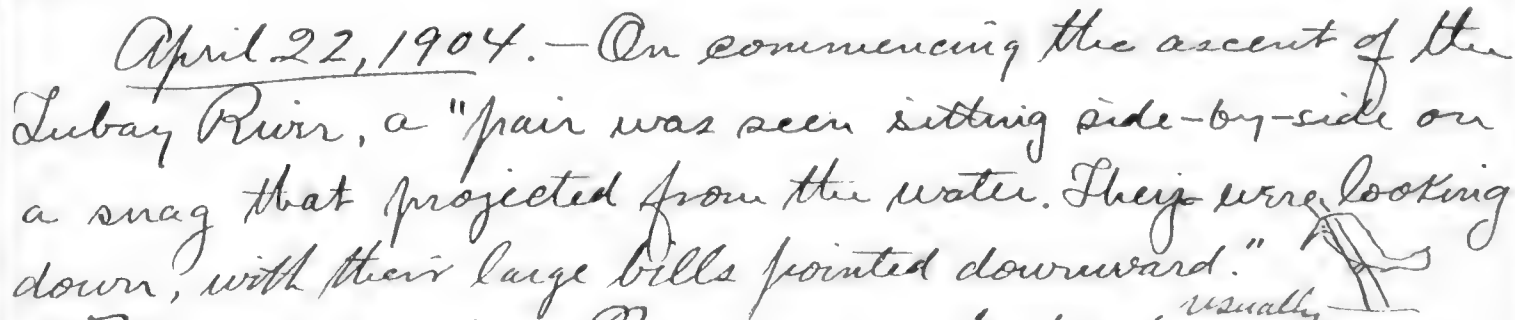 April 22, 1904. — On commencing the ascent of the
Tubay River, a "pair was seen sitting side-by-side on
a snag that projected from the water. They were looking
down, with their large bills pointed downward."
usually